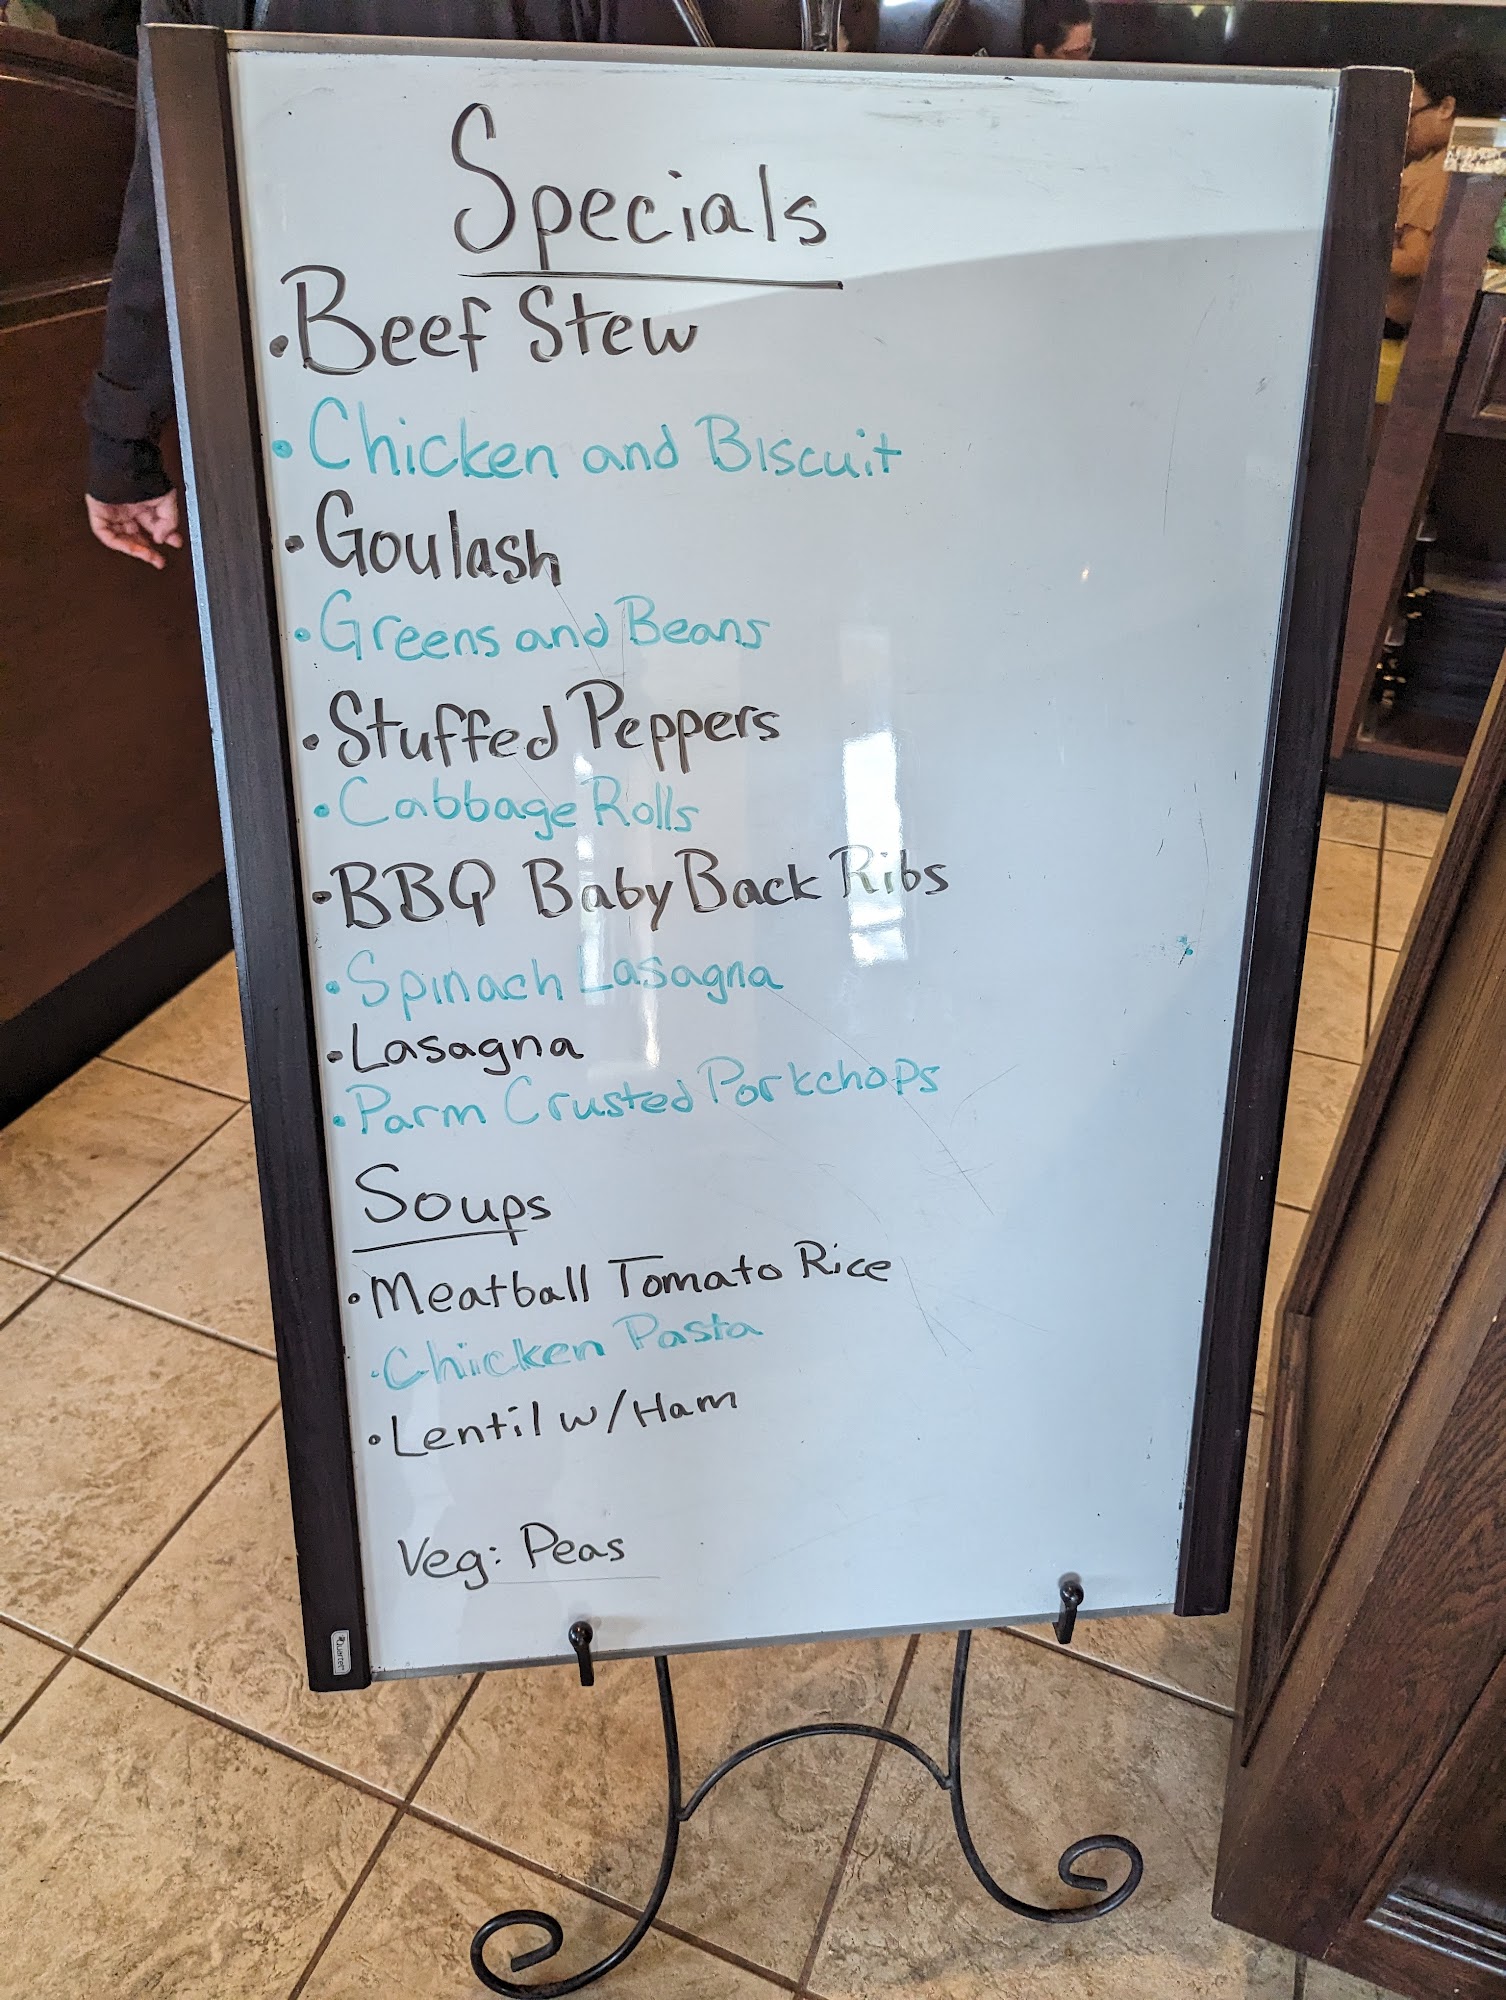 Specials
• Beef Stew
• Chicken and Biscuit
• Goulash
• Greens and Beans
• Stuffed Peppers
• Cabbage Rolls
• BBQ Baby Back Ribs
• Spinach Lasagna
• Lasagna
• Parm Crusted Porkchops
Soups
• Meatball Tomato Rice
• Chicken Pasta
• Lentil w/Ham
Veg: Peas
Quartet